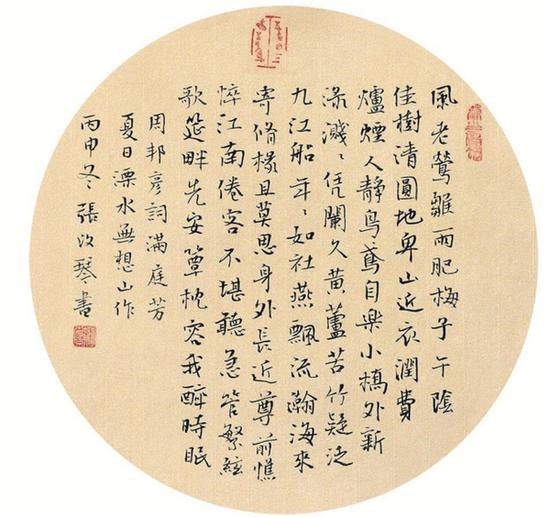 風老鶯雛雨肥梅子午陰
佳樹清圓地卑山近衣潤費
爐煙人靜鳥鳶自樂小橋外新
淥濺〻凭闌久黄蘆苦竹疑泛
九江船年〻如社燕飄流瀚海來
寄脩椽且莫思身外長近尊前憔
悴江南倦客不堪聽急管繁絃
歌筵畔先安簟枕容我醉時眠
周邦彥詞滿庭芳
夏日溧水無想山作
丙申冬張汝琴書